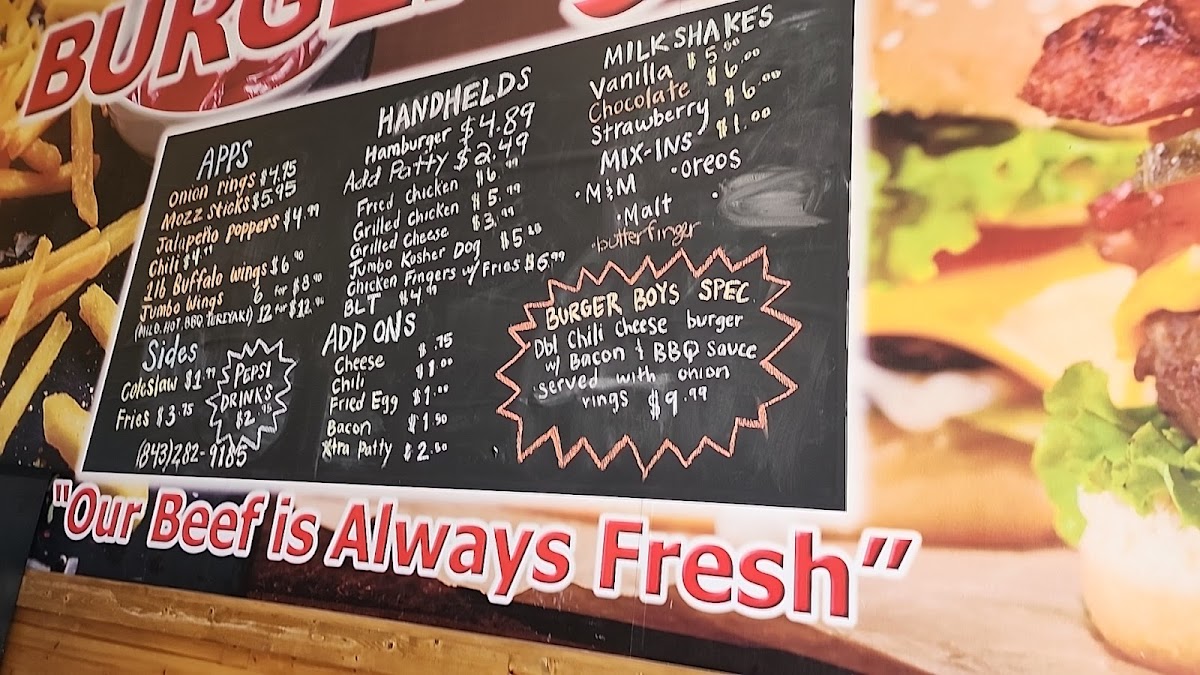 BURGER
APPS
Onion rings $4.95
Mozz sticks $5.95
Jalapeño poppers $4.99
Chili $4.99
1lb Buffalo wings $6.90
Jumbo Wings 6 for $8.90
(MILD, HOT, BBQ TERIYAKI) 12 for $12.90
Sides
Coleslaw $1.99
Fries $3.75
PEPSI
DRINKS
$2.95
(843)282-9185
HANDHELDS
Hamburger $4.89
Add Patty $2.49
Fried chicken $6.99
Grilled Chicken $5.99
Grilled Cheese $3.99
Jumbo Kosher Dog $5.00
Chicken Fingers w/ Fries $6.99
BLT $4.99
ADD ONS
Cheese $.75
Chili $1.00
Fried Egg $1.00
Bacon $1.50
Xtra Patty $2.50
MILKSHAKES
Vanilla $5.00
Chocolate $6.00
Strawberry $6.00
MIX-INS $1.00
•M&M •Oreos
•Malt •
•butterfinger
BURGER BOYS SPEC
Dbl Chili Cheese burger
w/ Bacon & BBQ Sauce
served with onion
rings $9.99
"Our Beef is Always Fresh"